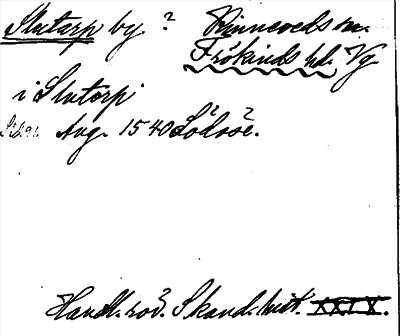 Slutarp by ? Kinneveds sn.
Frökinds hd. Vg
i Slutorp
Aug. 1540 Lödöse.
Handl. rör. Skand. hist. XXIX.